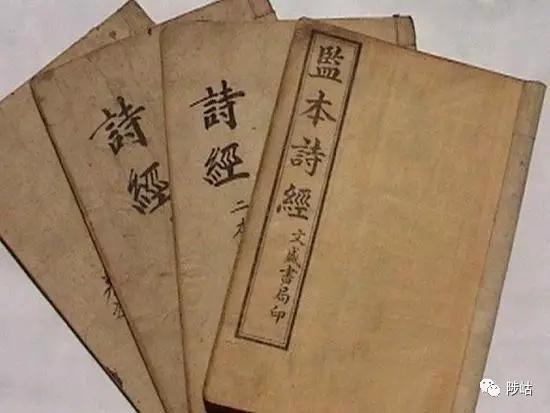 監本詩經
文盛書局印
詩經
二本
詩經
陟岵